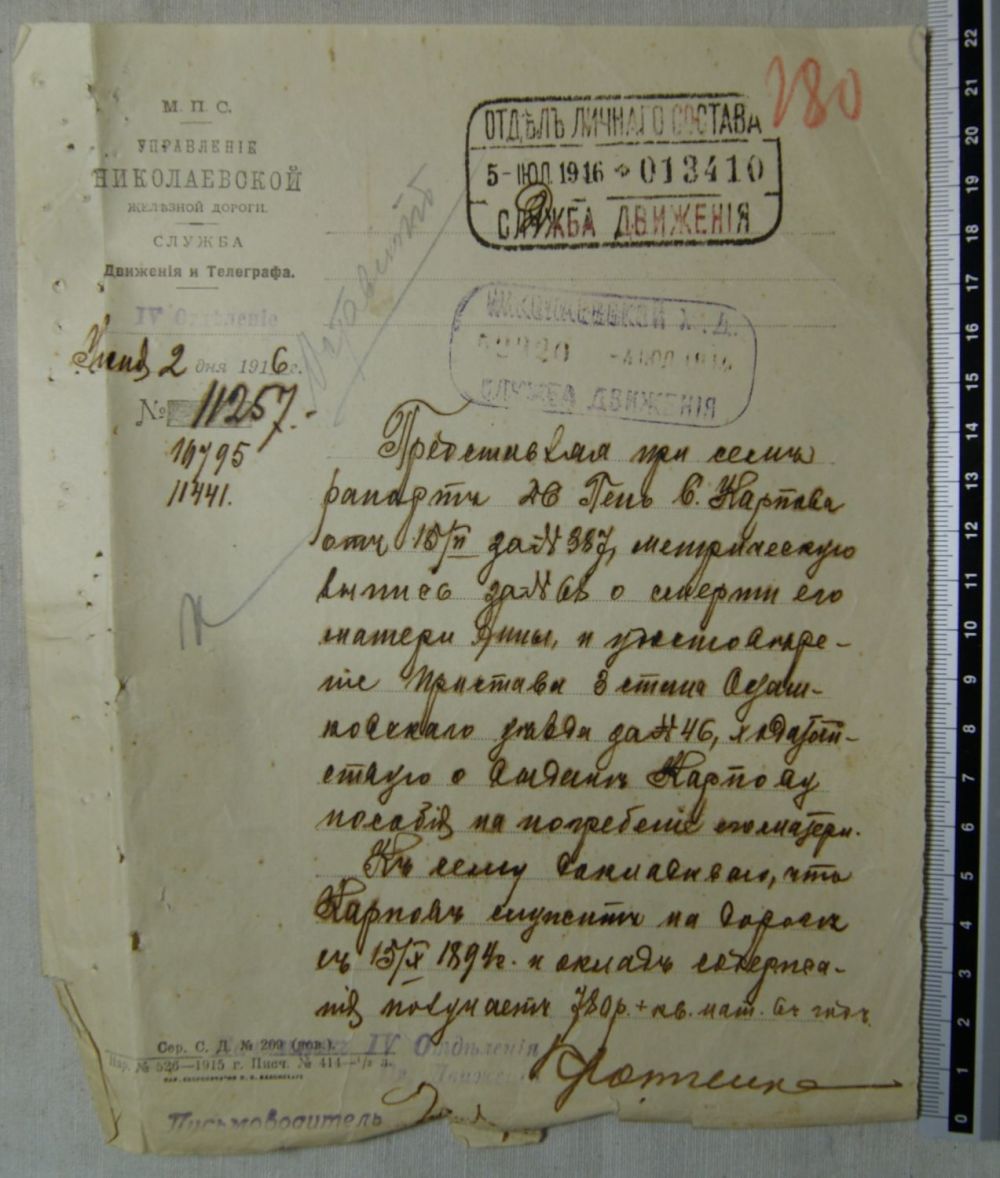 280
М. П. С.
УПРАВЛЕНІЕ
НИКОЛАЕВСКОЙ
ЖЕЛѢЗНОЙ ДОРОГИ.
СЛУЖБА
Движенія и Телеграфа.
IV Отдѣленіе
2 дня 1916 г.
№ 11257.
10795
11441.
ОТДѢЛЪ ЛИЧНАГО СОСТАВА
5-ІЮЛ.1916 013410
СЛУЖБА ДВИЖЕНІЯ
НИКОЛАЕВСКОЙ Ж. Д.
-4 ІЮЛ 1916
СЛУЖБА ДВИЖЕНІЯ
Представляя при семъ
рапортъ ДС Карпова
отъ 15/VI за № 387, метрическую
выпись за № 68 о смерти его
матери Анны, и удостовѣре-
ніе Пристава 3 стана Осташ-
ковскаго уѣзда за № 46, ходатай-
ствую о выдачѣ Карпову
пособія на погребеніе его матери.
Къ сему докладываю, что
Карповъ служитъ на дорогѣ
съ 15/X 1894 г. и окладъ содержа-
нія получаетъ 780 р. + кв. нат. въ годъ.
Сер. С. Д. № 209 (нов.).
Нар. № 526—1915 г. Писч. № 414—1/2 л.
IV Отдѣленія
Движенія
Письмоводитель